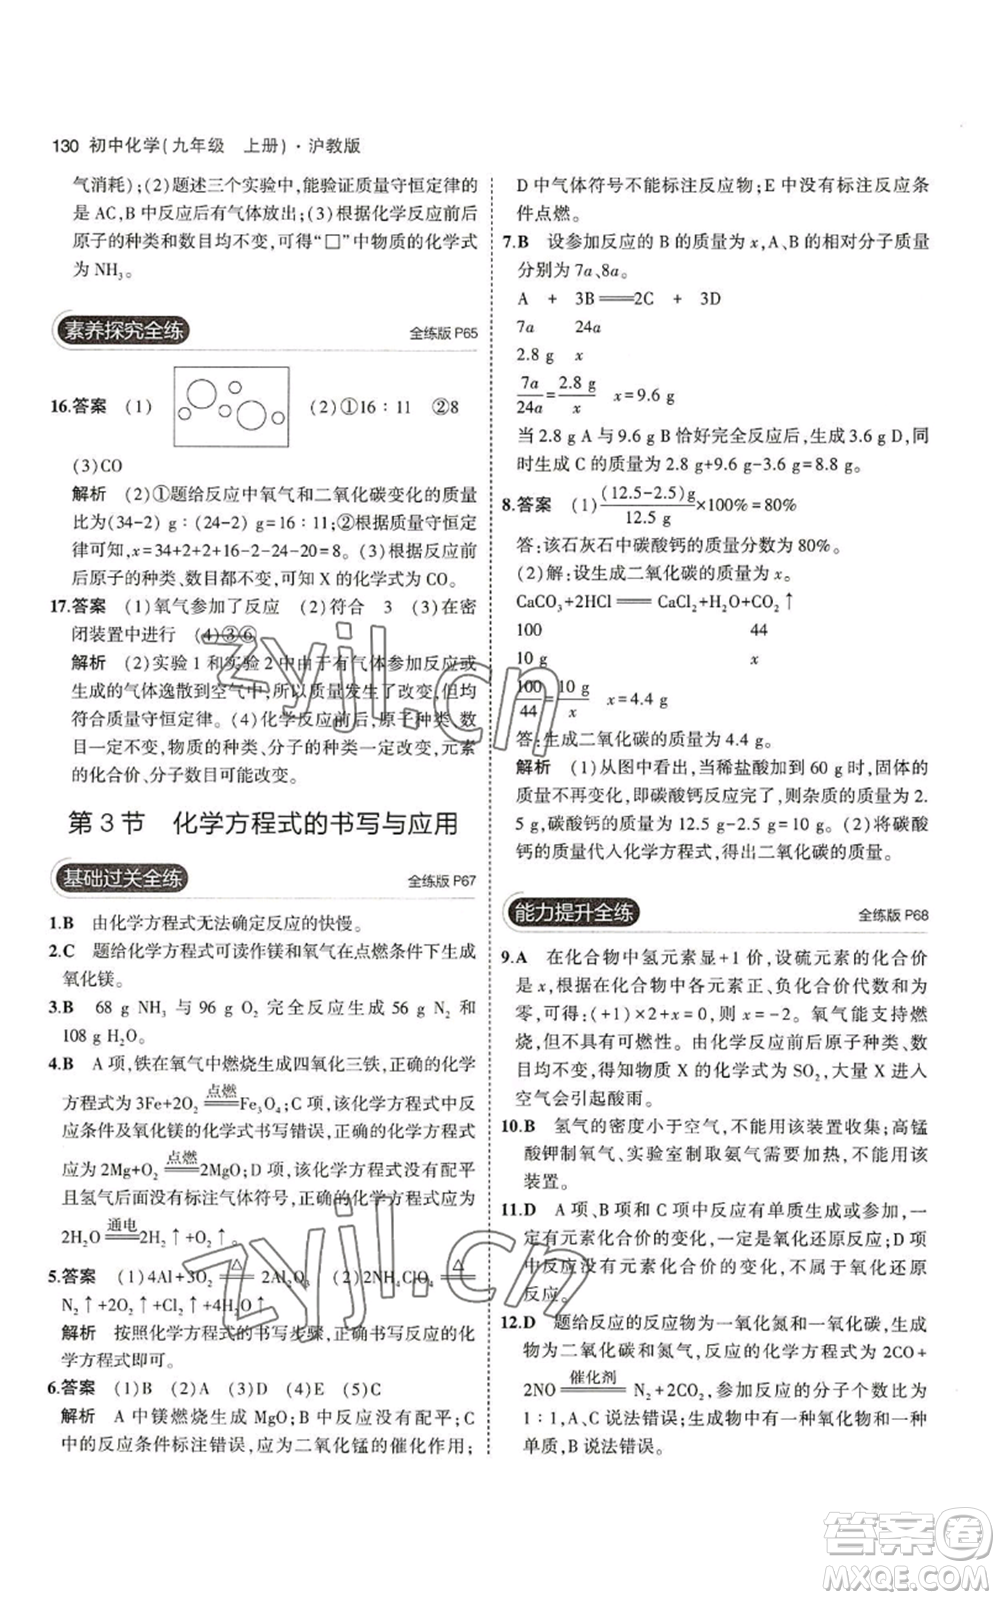 130 初中化学(九年级 上册)·沪教版
气消耗);(2)题述三个实验中,能验证质量守恒定律的
是 AC,B 中反应后有气体放出;(3)根据化学反应前后
原子的种类和数目均不变,可得“□”中物质的化学式
为 NH₃。
素养探究全练 全练版 P65
16.答案 (1) (2)①16∶11 ②8
(3)CO
解析 (2)①题给反应中氧气和二氧化碳变化的质量
比为(34-2) g∶(24-2) g=16∶11;②根据质量守恒定
律可知,x=34+2+2+16-2-24-20=8。(3)根据反应前
后原子的种类、数目都不变,可知 X 的化学式为 CO。
17.答案 (1)氧气参加了反应 (2)符合 3 (3)在密
闭装置中进行 (4)③⑥
解析 (2)实验 1 和实验 2 中由于有气体参加反应或
生成的气体逸散到空气中,所以质量发生了改变,但均
符合质量守恒定律。(4)化学反应前后,原子种类、数
目一定不变,物质的种类、分子的种类一定改变,元素
的化合价、分子数目可能改变。
第 3 节 化学方程式的书写与应用
基础过关全练 全练版 P67
1.B 由化学方程式无法确定反应的快慢。
2.C 题给化学方程式可读作镁和氧气在点燃条件下生成
氧化镁。
3.B 68 g NH₃ 与 96 g O₂ 完全反应生成 56 g N₂ 和
108 g H₂O。
4.B A 项,铁在氧气中燃烧生成四氧化三铁,正确的化学
方程式为 3Fe+2O₂ 点燃═ Fe₃O₄;C 项,该化学方程式中反
应条件及氧化镁的化学式书写错误,正确的化学方程式
为 2Mg+O₂ 点燃═ 2MgO;D 项,该化学方程式没有配平
且氢气后面没有标注气体符号,正确的化学方程式应为
2H₂O 通电═ 2H₂↑+O₂↑。
5.答案 (1)4Al+3O₂ △═ 2Al₂O₃ (2)2NH₄ClO₄ △═
N₂↑+2O₂↑+Cl₂↑+4H₂O↑
解析 按照化学方程式的书写步骤,正确书写反应的化
学方程式即可。
6.答案 (1)B (2)A (3)D (4)E (5)C
解析 A 中镁燃烧生成 MgO;B 中反应没有配平;C
中的反应条件标注错误,应为二氧化锰的催化作用;
D 中气体符号不能标注反应物;E 中没有标注反应条
件点燃。
7.B 设参加反应的 B 的质量为 x,A、B 的相对分子质量
分别为 7a、8a。
A + 3B═2C + 3D
7a 24a
2.8 g x
7a/24a=2.8 g/x x=9.6 g
当 2.8 g A 与 9.6 g B 恰好完全反应后,生成 3.6 g D,同
时生成 C 的质量为 2.8 g+9.6 g-3.6 g=8.8 g。
8.答案 (1)(12.5-2.5)g/12.5 g×100%=80%
答:该石灰石中碳酸钙的质量分数为 80%。
(2)解:设生成二氧化碳的质量为 x。
CaCO₃+2HCl═CaCl₂+H₂O+CO₂↑
100 44
10 g x
100/44=10 g/x x=4.4 g
答:生成二氧化碳的质量为 4.4 g。
解析 (1)从图中看出,当稀盐酸加到 60 g 时,固体的
质量不再变化,即碳酸钙反应完了,则杂质的质量为 2.
5 g,碳酸钙的质量为 12.5 g-2.5 g=10 g。(2)将碳酸
钙的质量代入化学方程式,得出二氧化碳的质量。
能力提升全练 全练版 P68
9.A 在化合物中氢元素显+1 价,设硫元素的化合价
是 x,根据化合物中各元素正、负化合价代数和为
零,可得:(+1)×2+x=0,x=-2。氧气能支持燃
烧,不具有可燃性。由化学反应前后原子的种类、个
数不变,得知物质 X 的化学式为 SO₂,大量 X 进入
空气会引起酸雨。
10.B 氢气的密度小于空气,不能用该装置收集;高锰
酸钾制氧气、实验室制取氨气需要加热,不能用该
装置。
11.D A 项、B 项和 C 项中反应有单质生成或参加,一
定有元素化合价的变化,属于氧化还原反应;D 项
中反应没有元素化合价的变化,不属于氧化还原
反应。
12.D 题给反应的反应物为一氧化氮和一氧化碳,生成
物为二氧化碳和氮气,反应的化学方程式为 2CO+
2NO 催化剂═ N₂+2CO₂,反应的分子个数比为
1∶1,A、C 说法错误;生成物中有一种氧化物和一种
单质,B 说法错误。
zyjl.cn
zyjl.cn
答案圈
MXQE.COM